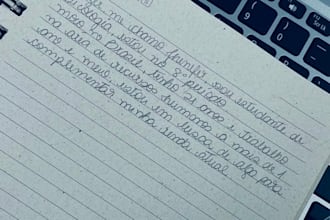 me chamo Jennifer, sou estudante de
psicologia estou no 3° período
moro no Brasil, tenho 21 anos e trabalho
na área de recursos humanos a mais de 1
ano e meio, estou em busca de algo para
complementar minha renda atual.